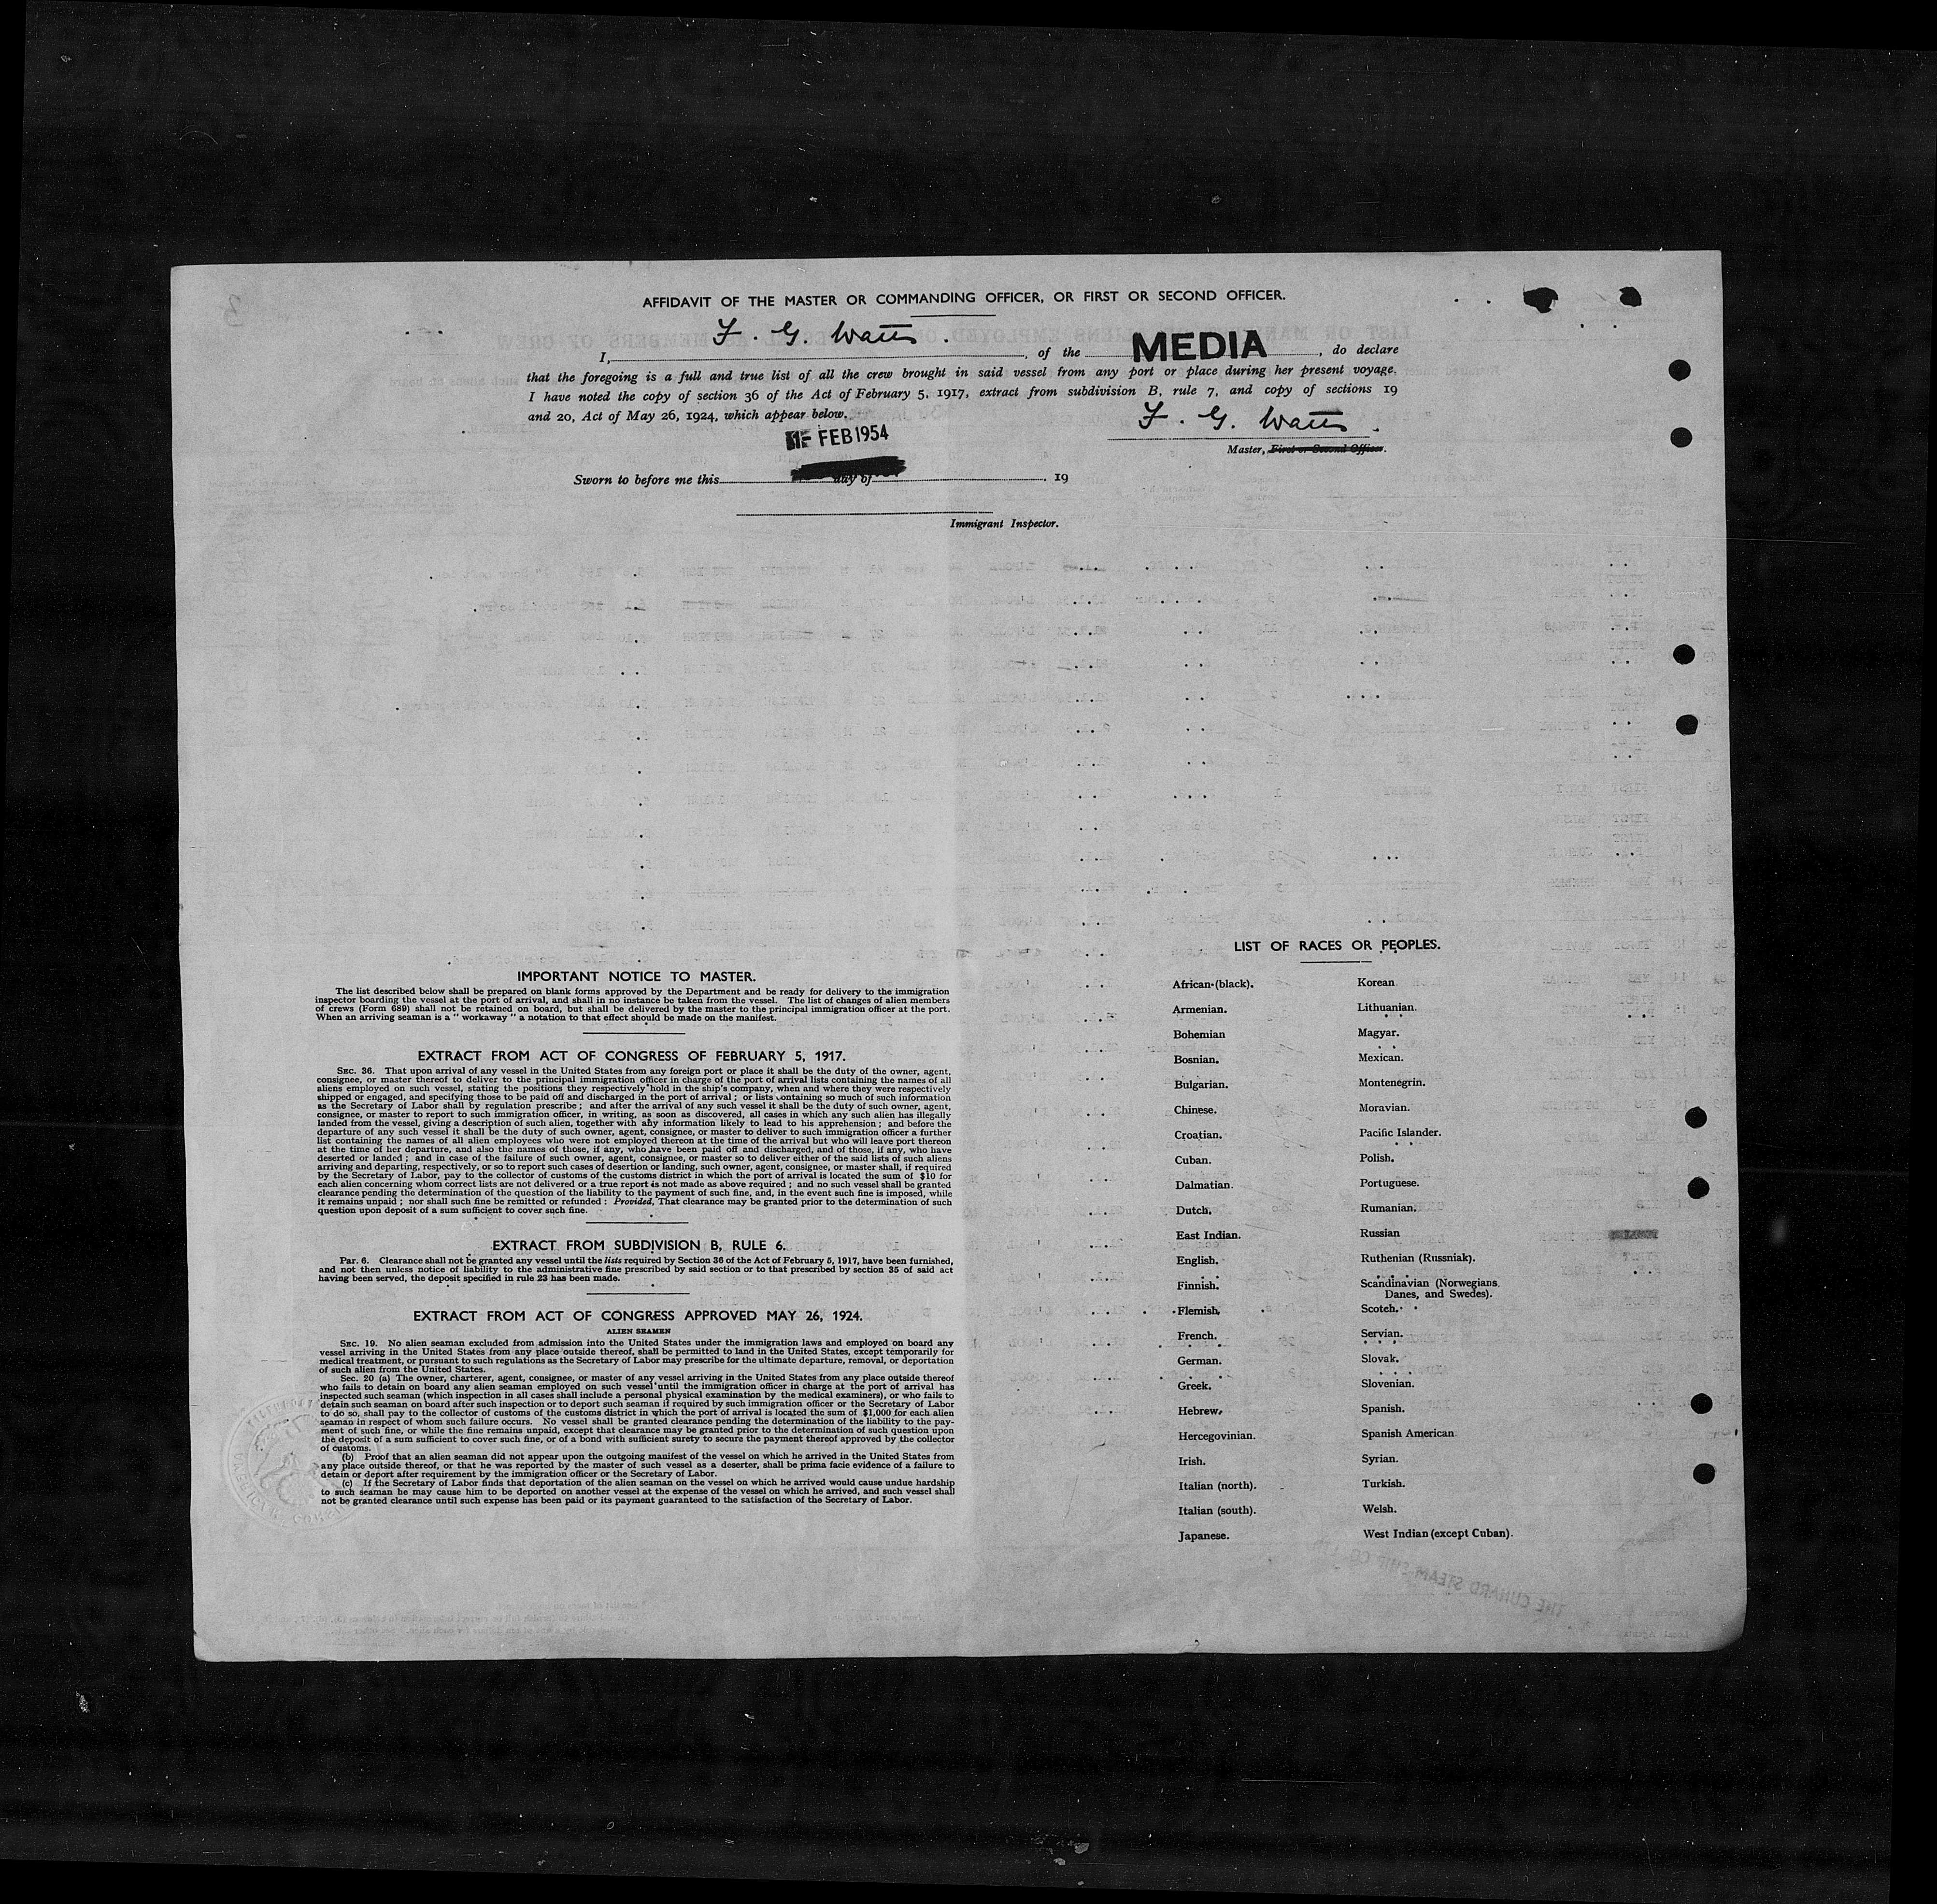 AFFIDAVIT OF THE MASTER OR COMMANDING OFFICER, OR FIRST OR SECOND OFFICER.
I, F. G. Watts. , of the MEDIA , do declare
that the foregoing is a full and true list of all the crew brought in said vessel from any port or place during her present voyage.
I have noted the copy of section 36 of the Act of February 5, 1917, extract from subdivision B, rule 7, and copy of sections 19
and 20, Act of May 26, 1924, which appear below.
F. G. Watts.
FEB 1954
Master, First or Second Officer.
Sworn to before me this day of , 19
Immigrant Inspector.
IMPORTANT NOTICE TO MASTER.
The list described below shall be prepared on blank forms approved by the Department and be ready for delivery to the immigration
inspector boarding the vessel at the port of arrival, and shall in no instance be taken from the vessel. The list of changes of alien members
of crews (Form 689) shall not be retained on board, but shall be delivered by the master to the principal immigration officer at the port.
When an arriving seaman is a " workaway " a notation to that effect should be made on the manifest.
EXTRACT FROM ACT OF CONGRESS OF FEBRUARY 5, 1917.
SEC. 36. That upon arrival of any vessel in the United States from any foreign port or place it shall be the duty of the owner, agent,
consignee, or master thereof to deliver to the principal immigration officer in charge of the port of arrival lists containing the names of all
aliens employed on such vessel, stating the positions they respectively hold in the ship's company, when and where they were respectively
shipped or engaged, and specifying those to be paid off and discharged in the port of arrival ; or lists containing so much of such information
as the Secretary of Labor shall by regulation prescribe ; and after the arrival of any such vessel it shall be the duty of such owner, agent,
consignee, or master to report to such immigration officer, in writing, as soon as discovered, all cases in which any such alien has illegally
landed from the vessel, giving a description of such alien, together with any information likely to lead to his apprehension ; and before the
departure of any such vessel it shall be the duty of such owner, agent, consignee, or master to deliver to such immigration officer a further
list containing the names of all alien employees who were not employed thereon at the time of the arrival but who will leave port thereon
at the time of her departure, and also the names of those, if any, who have been paid off and discharged, and of those, if any, who have
deserted or landed ; and in case of the failure of such owner, agent, consignee, or master so to deliver either of the said lists of such aliens
arriving and departing, respectively, or so to report such cases of desertion or landing, such owner, agent, consignee, or master shall, if required
by the Secretary of Labor, pay to the collector of customs of the customs district in which the port of arrival is located the sum of $10 for
each alien concerning whom correct lists are not delivered or a true report is not made as above required ; and no such vessel shall be granted
clearance pending the determination of the question of the liability to the payment of such fine, and, in the event such fine is imposed, while
it remains unpaid ; nor shall such fine be remitted or refunded : Provided, That clearance may be granted prior to the determination of such
question upon deposit of a sum sufficient to cover such fine.
EXTRACT FROM SUBDIVISION B, RULE 6.
PAR. 6. Clearance shall not be granted any vessel until the lists required by Section 36 of the Act of February 5, 1917, have been furnished,
and not then unless notice of liability to the administrative fine prescribed by said section or to that prescribed by section 35 of said act
having been served, the deposit specified in rule 23 has been made.
EXTRACT FROM ACT OF CONGRESS APPROVED MAY 26, 1924.
ALIEN SEAMEN
SEC. 19. No alien seaman excluded from admission into the United States under the immigration laws and employed on board any
vessel arriving in the United States from any place outside thereof, shall be permitted to land in the United States, except temporarily for
medical treatment, or pursuant to such regulations as the Secretary of Labor may prescribe for the ultimate departure, removal, or deportation
of such alien from the United States.
Sec. 20 (a) The owner, charterer, agent, consignee, or master of any vessel arriving in the United States from any place outside thereof
who fails to detain on board any alien seaman employed on such vessel until the immigration officer in charge at the port of arrival has
inspected such seaman (which inspection in all cases shall include a personal physical examination by the medical examiners), or who fails to
detain such seaman on board after such inspection or to deport such seaman if required by such immigration officer or the Secretary of Labor
to do so, shall pay to the collector of customs of the customs district in which the port of arrival is located the sum of $1,000 for each alien
seaman in respect of whom such failure occurs. No vessel shall be granted clearance pending the determination of the liability to the pay-
ment of such fine, or while the fine remains unpaid, except that clearance may be granted prior to the determination of such question upon
the deposit of a sum sufficient to cover such fine, or of a bond with sufficient surety to secure the payment thereof approved by the collector
of customs.
(b) Proof that an alien seaman did not appear upon the outgoing manifest of the vessel on which he arrived in the United States from
any place outside thereof, or that he was reported by the master of such vessel as a deserter, shall be prima facie evidence of a failure to
detain or deport after requirement by the immigration officer or the Secretary of Labor.
(c) If the Secretary of Labor finds that deportation of the alien seaman on the vessel on which he arrived would cause undue hardship
to such seaman he may cause him to be deported on another vessel at the expense of the vessel on which he arrived, and such vessel shall
not be granted clearance until such expense has been paid or its payment guaranteed to the satisfaction of the Secretary of Labor.
LIST OF RACES OR PEOPLES.
African (black).
Armenian.
Bohemian
Bosnian.
Bulgarian.
Chinese.
Croatian.
Cuban.
Dalmatian.
Dutch.
East Indian.
English.
Finnish.
Flemish.
French.
German.
Greek.
Hebrew.
Hercegovinian.
Irish.
Italian (north).
Italian (south).
Japanese.
Korean.
Lithuanian.
Magyar.
Mexican.
Montenegrin.
Moravian.
Pacific Islander.
Polish.
Portuguese.
Rumanian.
Russian
Ruthenian (Russniak).
Scandinavian (Norwegians,
Danes, and Swedes).
Scotch.
Servian.
Slovak.
Slovenian.
Spanish.
Spanish American
Syrian.
Turkish.
Welsh.
West Indian (except Cuban).
THE CUNARD STEAM SHIP CO. LTD